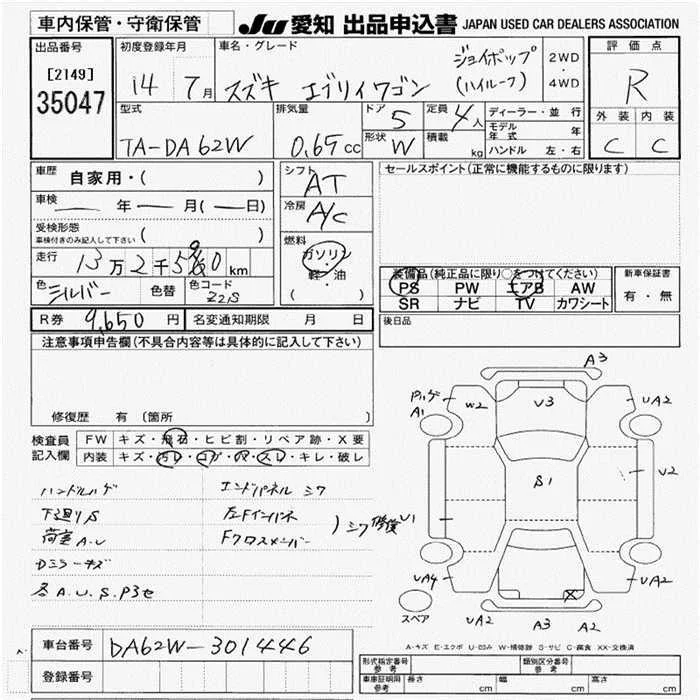 車内保管・守衛保管
JU 愛知 出品申込書 JAPAN USED CAR DEALERS ASSOCIATION
出品番号
[2149]
35047
初度登録年月
14 7月
車名・グレード
スズキ エブリイワゴン
ジョイポップ
(ハイルーフ)
2WD
・
4WD
評価点
R
外装 内装
C C
型式
TA-DA62W
排気量
0.65cc
ドア 5
形状 W
定員 4人
積載 kg
ディーラー・並行
モデル年式 年
ハンドル 左・右
車歴 自家用・( )
車検 — 年 — 月(—日)
受検形態
車検付きのみ記入して下さい ( )
走行 13万2千5 0 km
色 シルバー 色替 色コード Z2S
シフト AT
冷房 A/C
燃料
ガソリン
・
軽・油
( )
セールスポイント(正常に機能するものに限ります)
装備品(純正品に限り○をつけてください)
PS PW エアB AW
SR ナビ TV カワシート
新車保証書
有・無
R券 9,650円 名変通知期限 月 日
後日品
注意事項申告欄(不具合内容等は具体的に記入して下さい)
修復歴 有 〔箇所 〕
検査員記入欄
FW キズ・飛石・ヒビ割・リペア跡・X要
内装 キズ・汚レ・コゲ・穴・スレ・キレ・破レ
ハンドルハゲ
下廻りS
荷室A.U
Dミラーキズ
各A.U.S.P3セ
エンドパネル シワ
左Fインパネ
Fクロスメンバー
シワ 修復
A3
ハゲ
A1
W2
V3
UA2
S1
V2
U1
UA4
X
UA2
スペア
UA2
A3
A2
A-キズ E-エクボ U-凹み W-補修跡 S-サビ C-腐食 XX-交換済
車台番号 DA62W-301446
登録番号
形式指定番号
参考
類別区分番号
参考
車庫証明用
参考
長さ cm 幅 cm 高さ cm